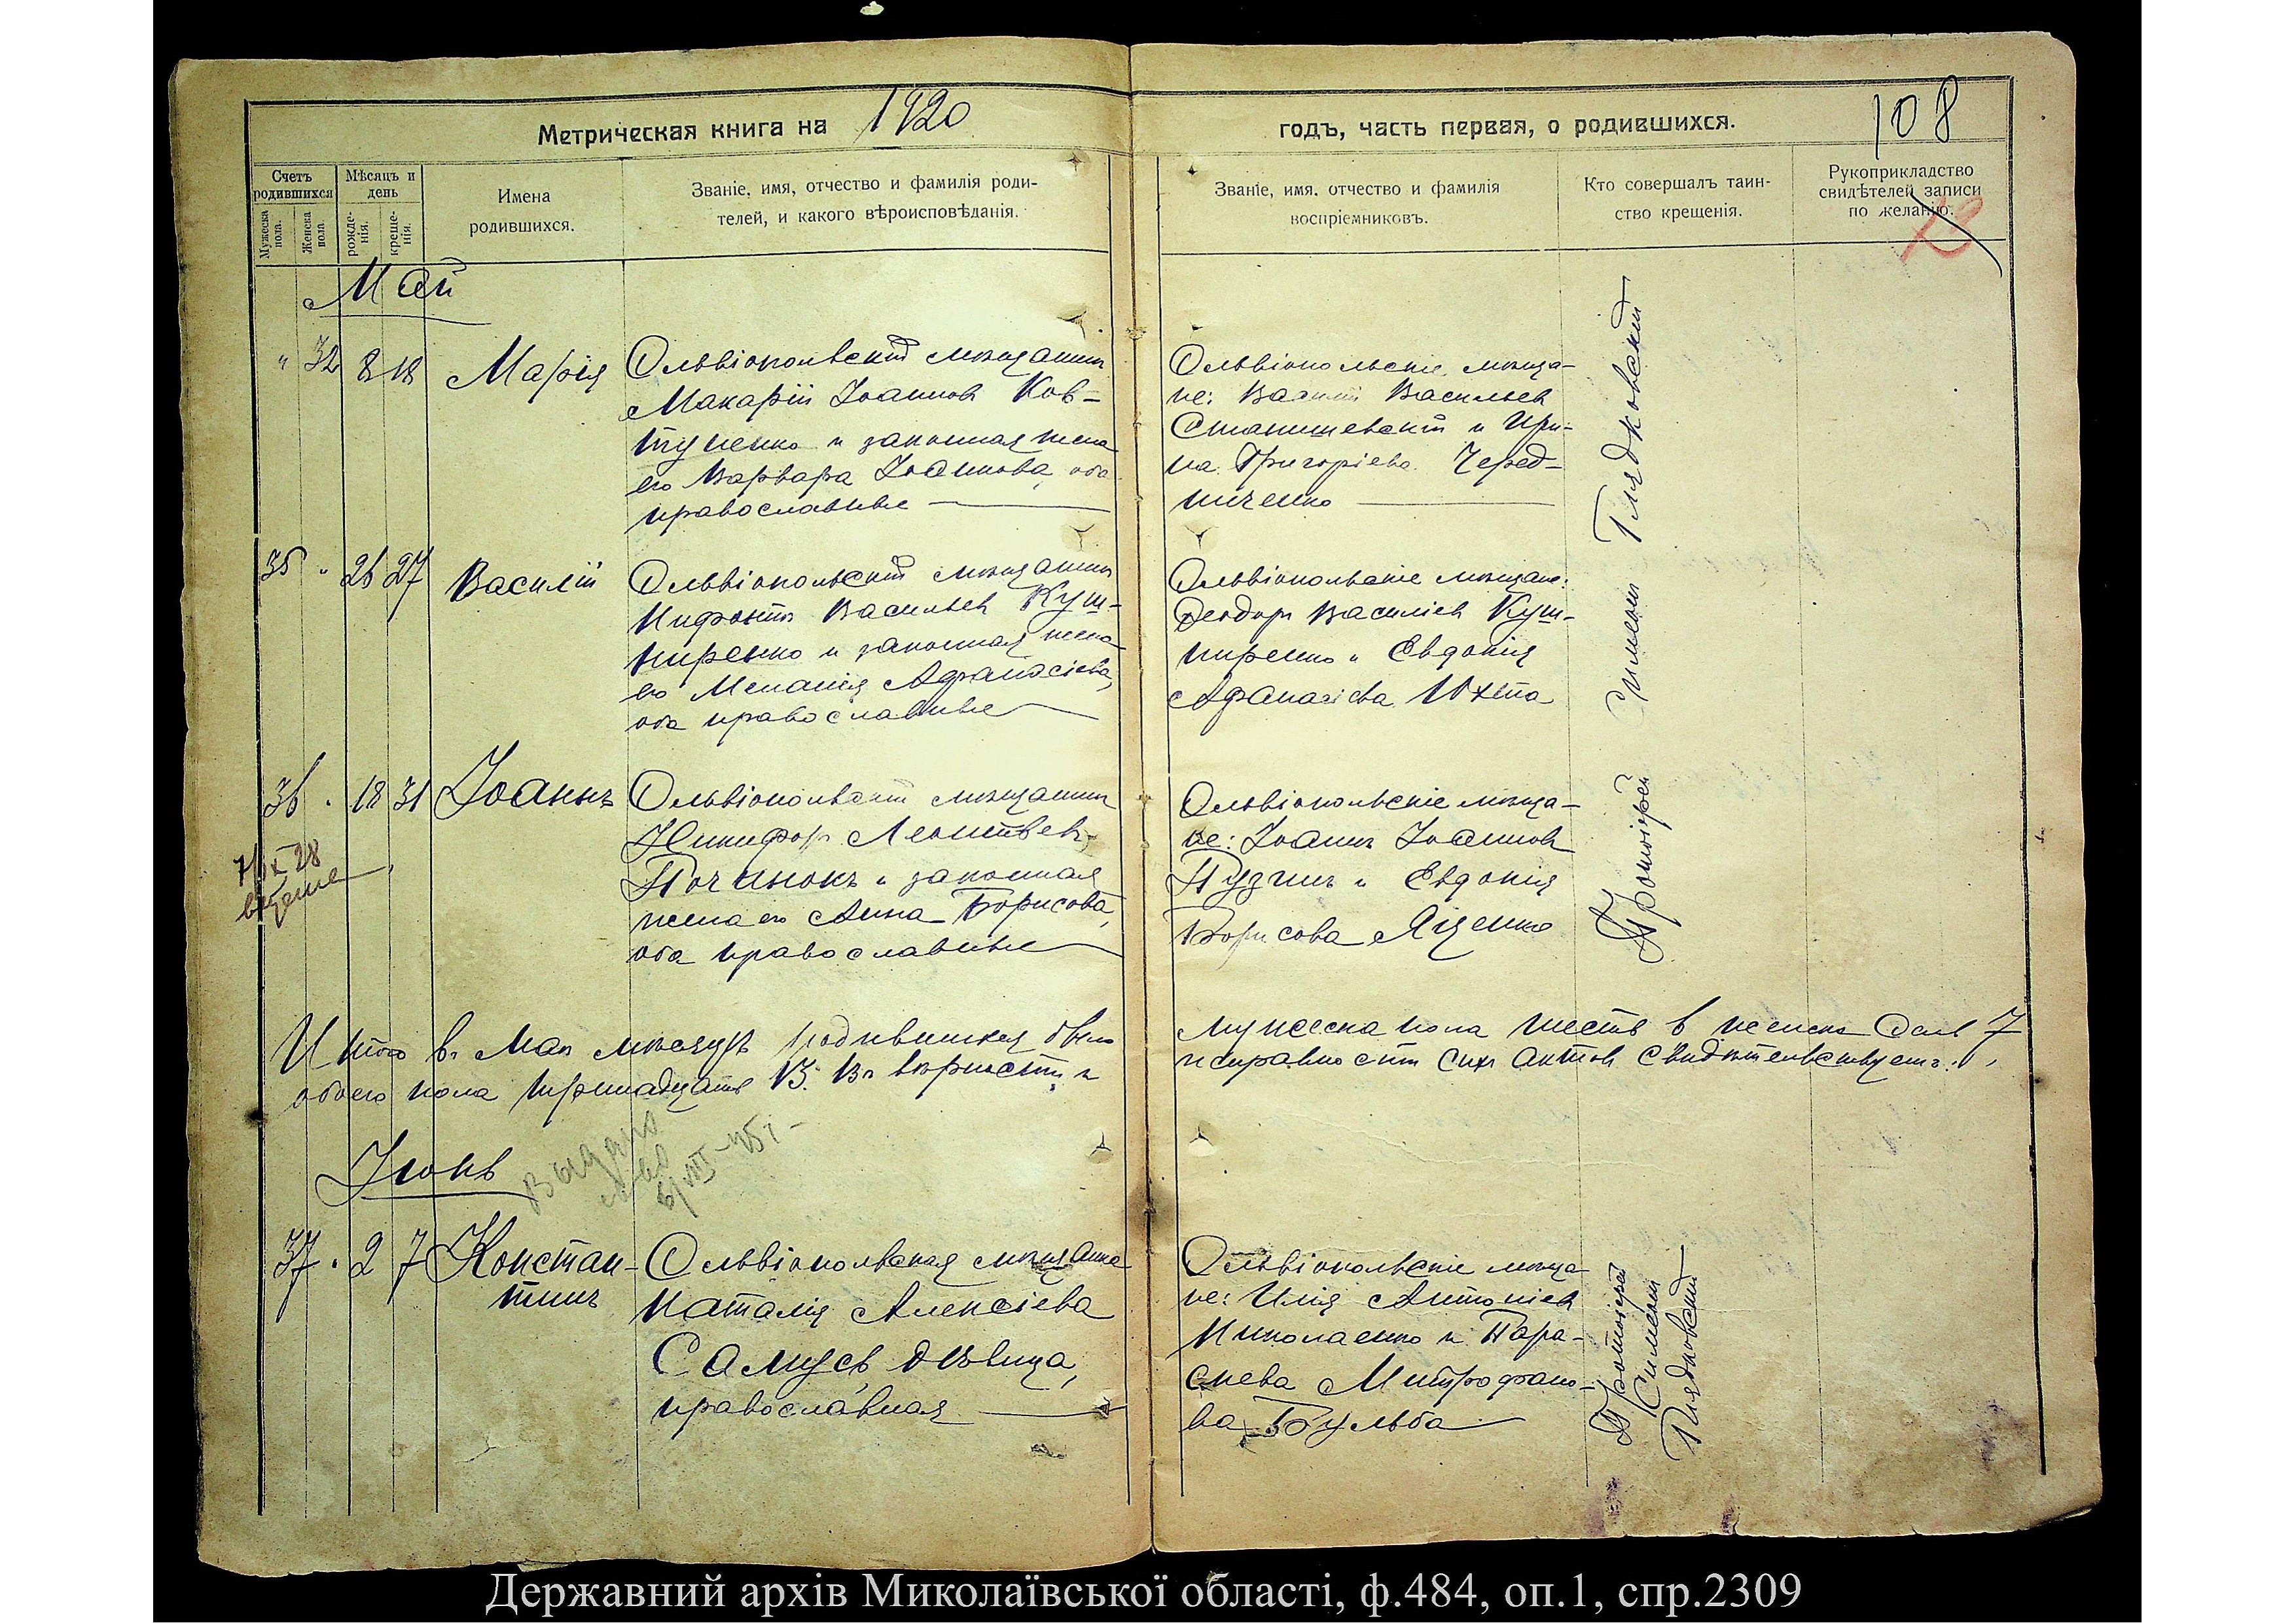 Метрическая книга на 1920 годъ, часть первая, о родившихся. 108
Счетъ родившихся
Мужеска пола.
Женска пола.
Мѣсяцъ и день
рожде-
нія.
креще-
нія.
Имена
родившихся.
Званіе, имя, отчество и фамилія роди-
телей, и какого вѣроисповѣданія.
Званіе, имя, отчество и фамилія
воспріемниковъ.
Кто совершалъ таин-
ство крещенія.
Рукоприкладство
свидѣтелей записи
по желанію.
Май
" 32 8 18 Марія
Ольвіопольскій мѣщанинъ
Макарій Іоанновъ Ков-
туненко и законная жена
его Варвара Іоаннова, оба
православные
Ольвіопольскіе мѣща-
не: Василій Васильевъ
Станишевскій и Ири-
на Григоріева Черед-
ниченко
35 " 26 27 Василій
Ольвіопольскій мѣщанинъ
Нифонтъ Васильевъ Куш-
ниренко и законная жена
его Меланія Афанасіева,
оба православные
Ольвіопольскіе мѣщане:
Феодоръ Василіевъ Куш-
ниренко и Евдокія
Афанасіева
36 " 18 31 Іоаннъ
Ольвіопольскій мѣщанинъ
Никифоръ Леонтьевъ
Починокъ и законная
жена его Анна Борисова,
оба православные
Ольвіопольскіе мѣща-
не: Іоаннъ Іоанновъ
Пузчинъ и Евдокія
Борисова Яценко
Протоіерей Симеонъ Гладковскій
Итого въ Маѣ мѣсяцѣ родившихся было мужеска пола шесть 6 женска семь 7
обоего пола тринадцать 13. Въ вѣрности и исправности сихъ актовъ свидѣтельствуетъ:
Іюнь
Выдано
37 " 2 7 Констан-
тинъ
Ольвіопольская мѣщанка
Наталія Алексіева
Самусь, дѣвица,
православная
Ольвіопольскіе мѣща-
не: Илія Антоніевъ
Николаенко и Пара-
скева Митрофано-
ва Бульба
Протоіерей
Симеонъ
Гладковскій
Державний архів Миколаївської області, ф.484, оп.1, спр.2309